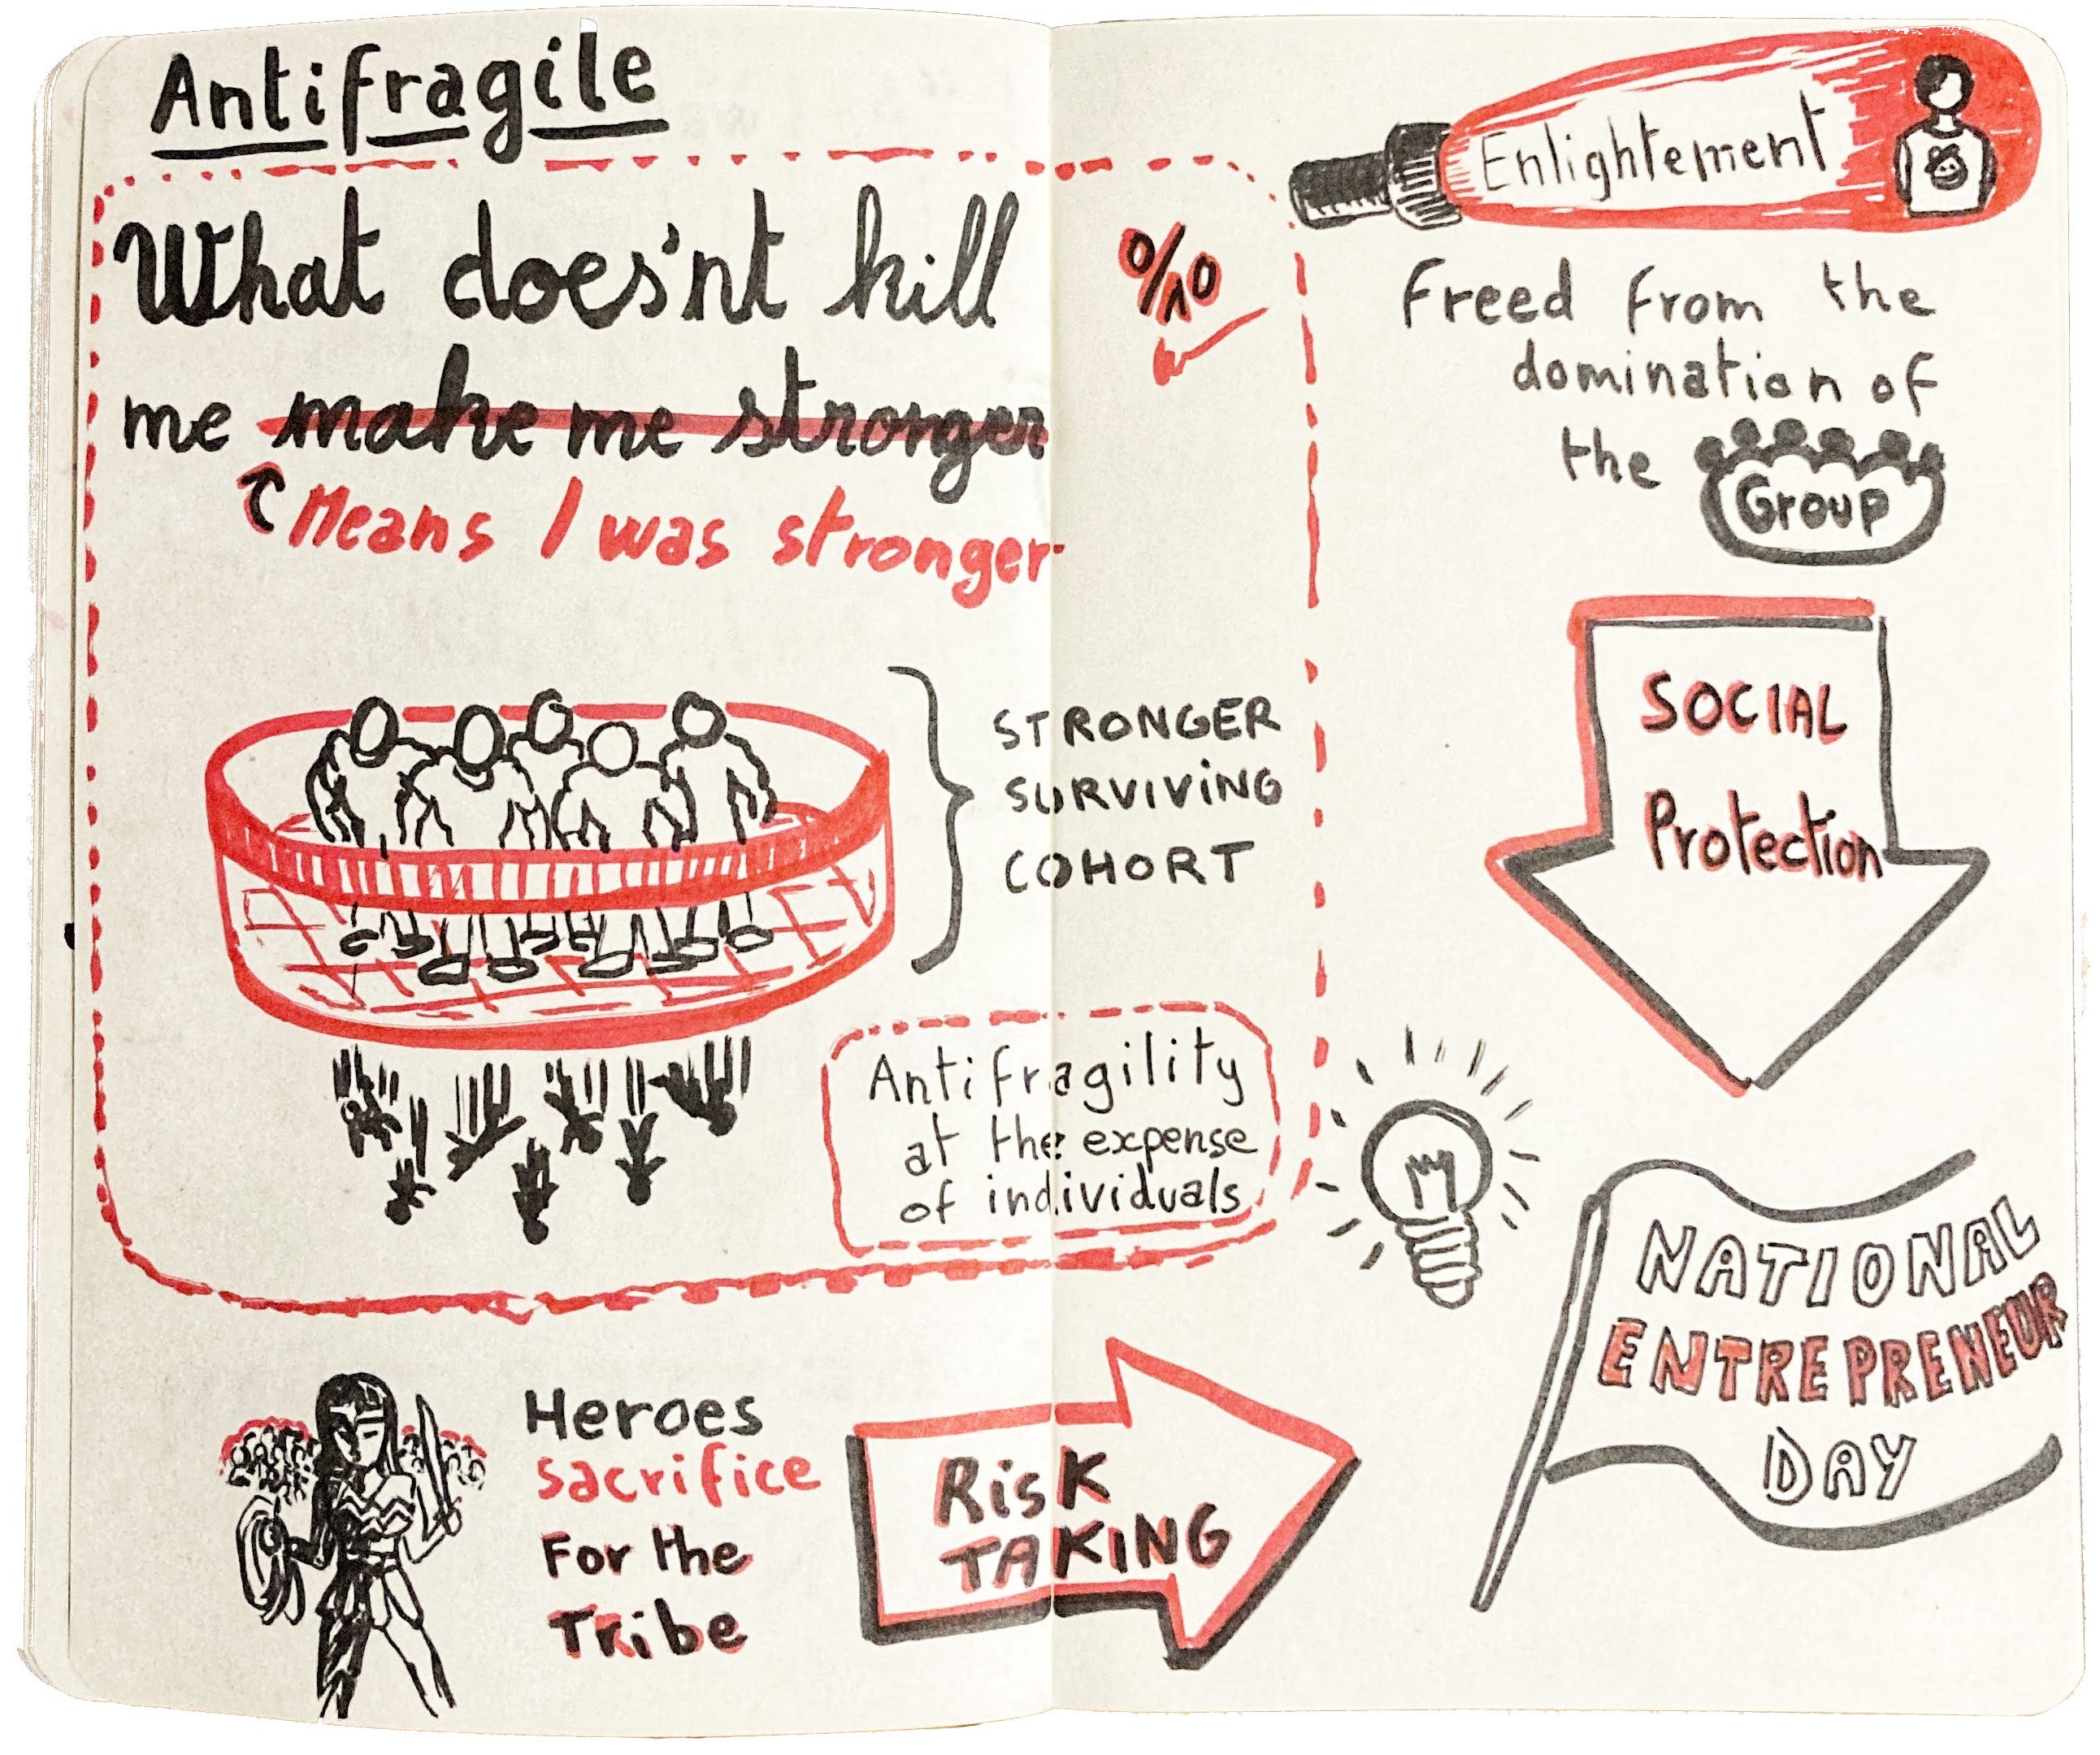 Antifragile
What does'nt kill
me make me stronger
Means I was stronger
0/10
STRONGER
SURVIVING
COHORT
Antifragility
at the expense
of individuals
Heroes
sacrifice
For the
Tribe
Risk
TAKING
Enlightement
Freed from the
domination of
the Group
SOCIAL
Protection
NATIONAL
ENTREPRENEUR
DAY